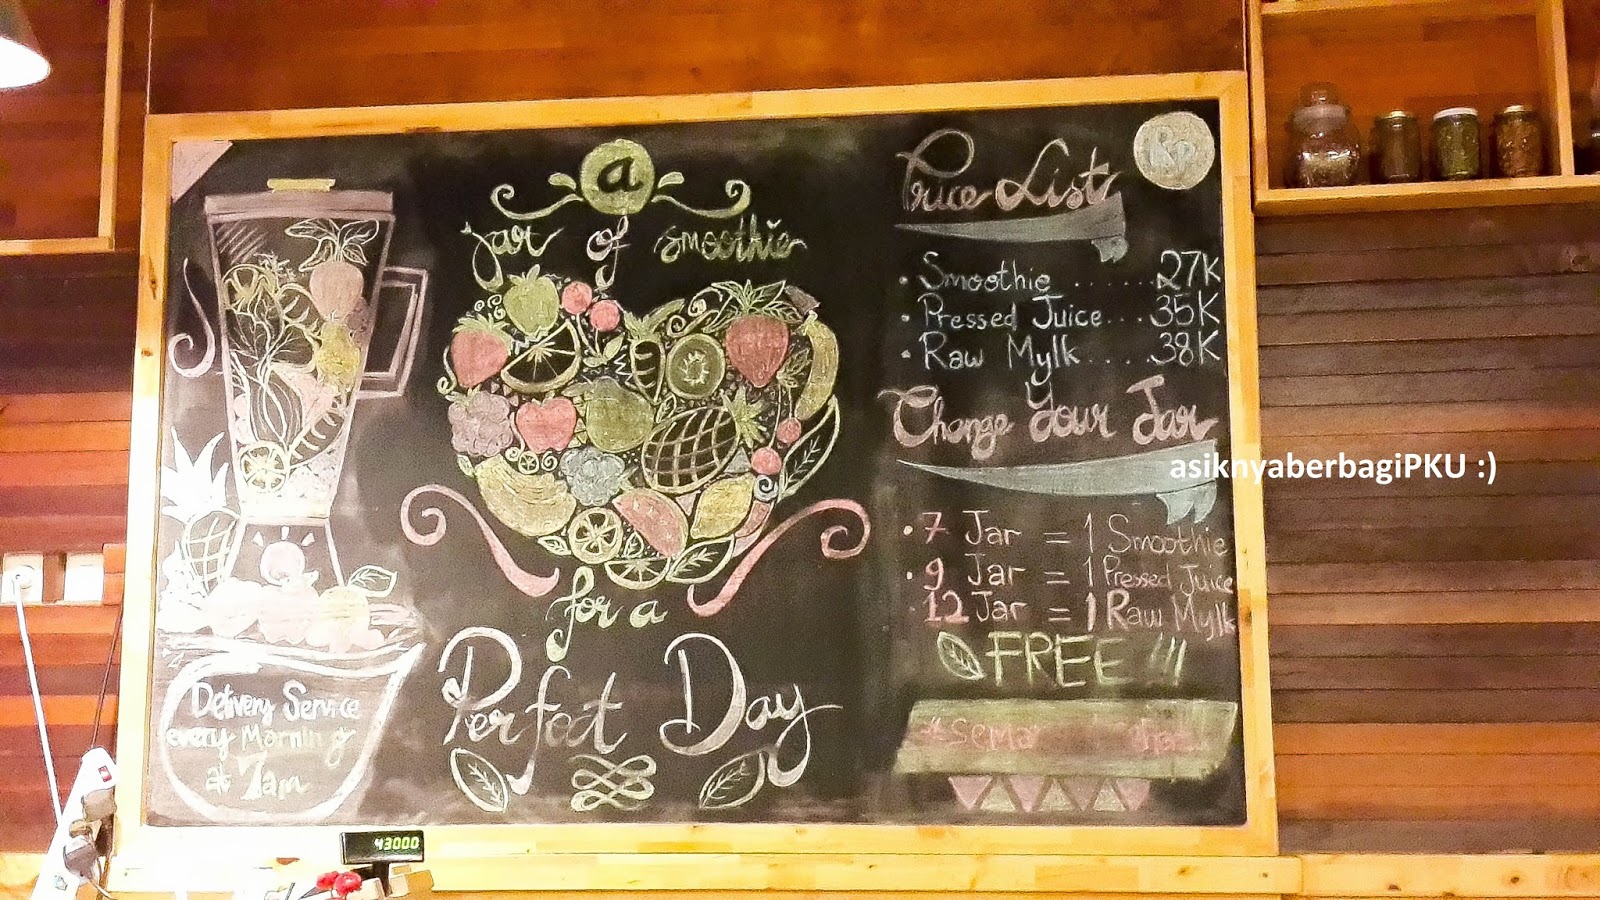 a
jar of smoothie
for a
Perfect Day
Delivery Service
every Morning
at 7am
Price List
Rp
• Smoothie ...... 27K
• Pressed Juice... 35K
• Raw Mylk.... 38K
Change Your Jar
• 7 Jar = 1 Smoothie
• 9 Jar = 1 Pressed Juice
• 12 Jar = 1 Raw Mylk
FREE !!!
asiknyaberbagiPKU :)
43000